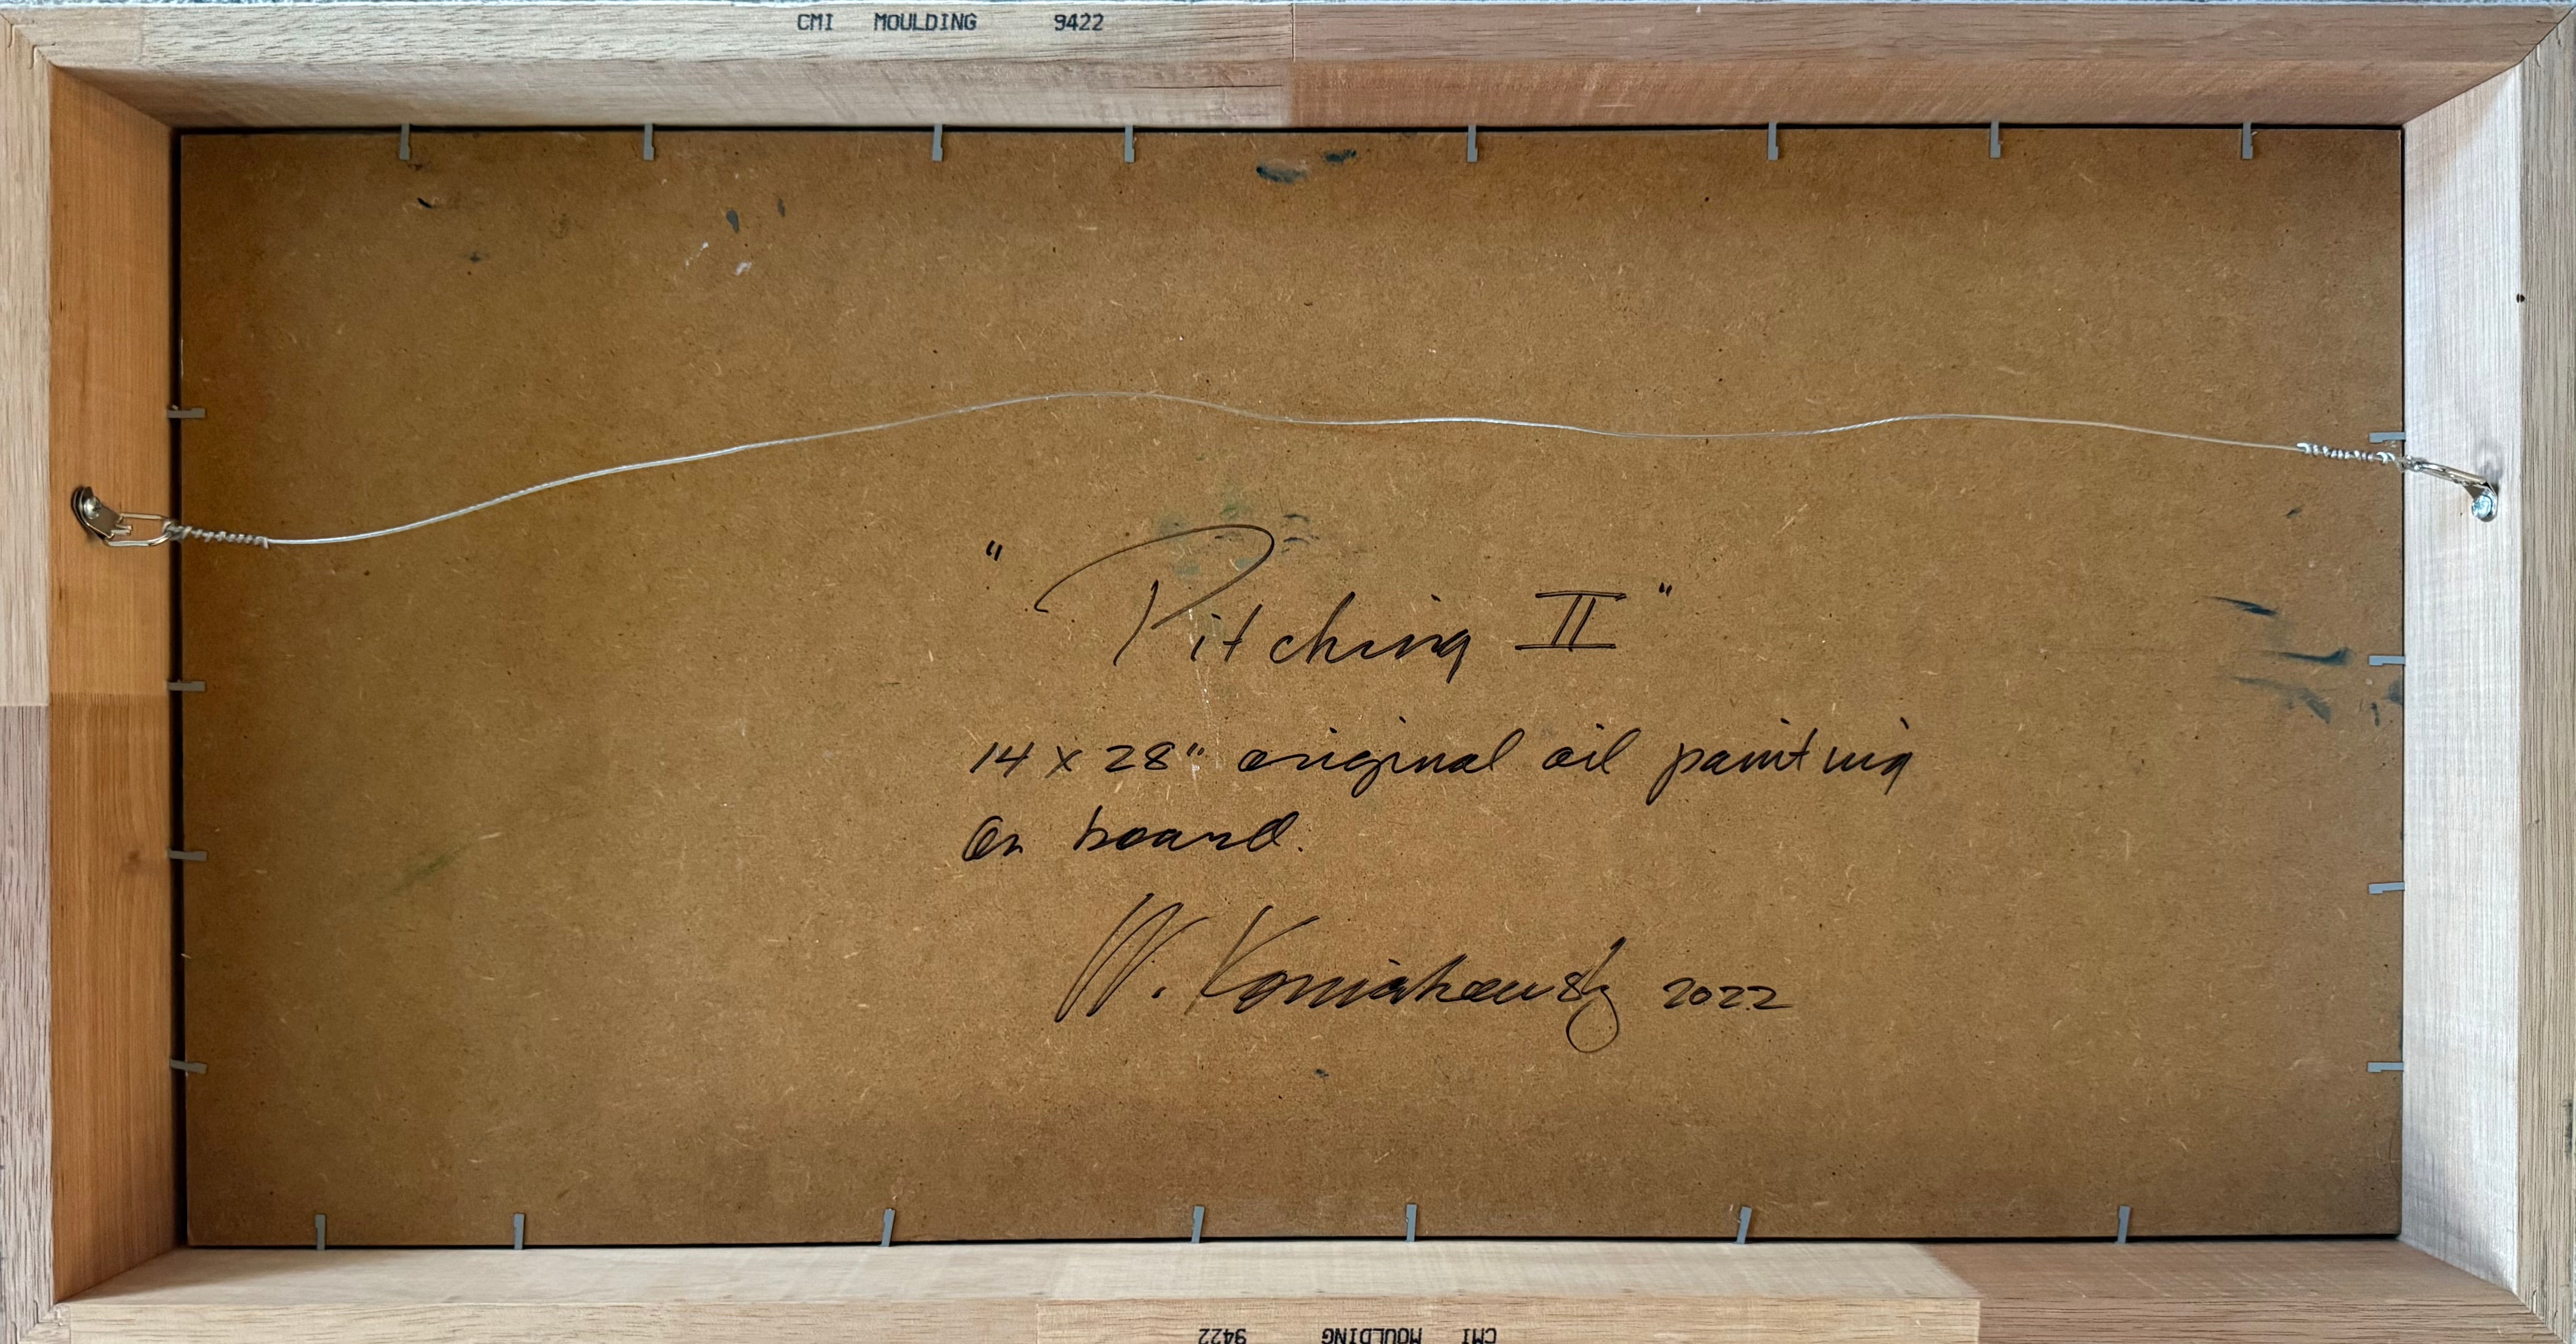 CMI MOULDING 9422
"Pitching II"
14 x 28" original oil painting
on board.
W. 2022
CMI MOULDING 9422